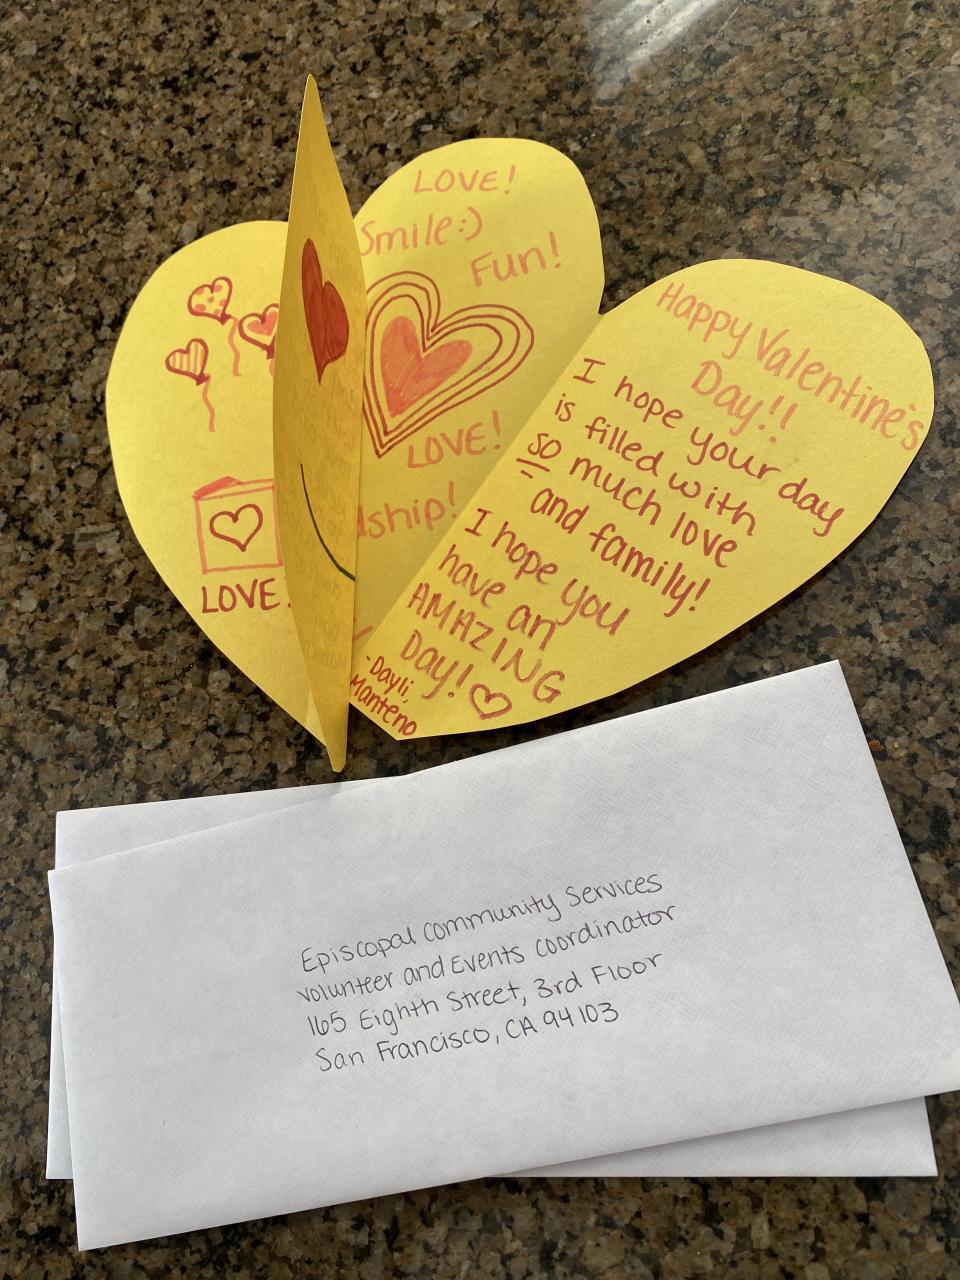 LOVE!
Smile:)
Fun!
LOVE!
dship!
LOVE!
Happy Valentine's
Day!!
I hope your day
is filled with
so much love
and family!
I hope you
have an
AMAZING
Day!
-Dayli,
Manteno
Episcopal Community Services
Volunteer and Events Coordinator
165 Eighth Street, 3rd Floor
San Francisco, CA 94103